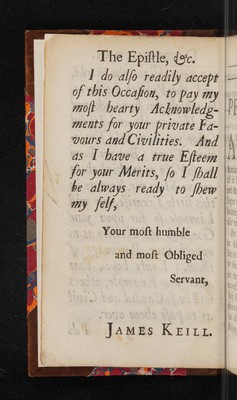 The Epiſtle, &c.
I do alſo readily accept
of this Occaſion, to pay my
moſt hearty Acknowledg-
ments for your private Fa-
vours and Civilities. And
as I have a true Eſteem
for your Merits, ſo I ſhall
be always ready to ſhew
my ſelf,
Your moſt humble
and moſt Obliged
Servant,
JAMES KEILL.